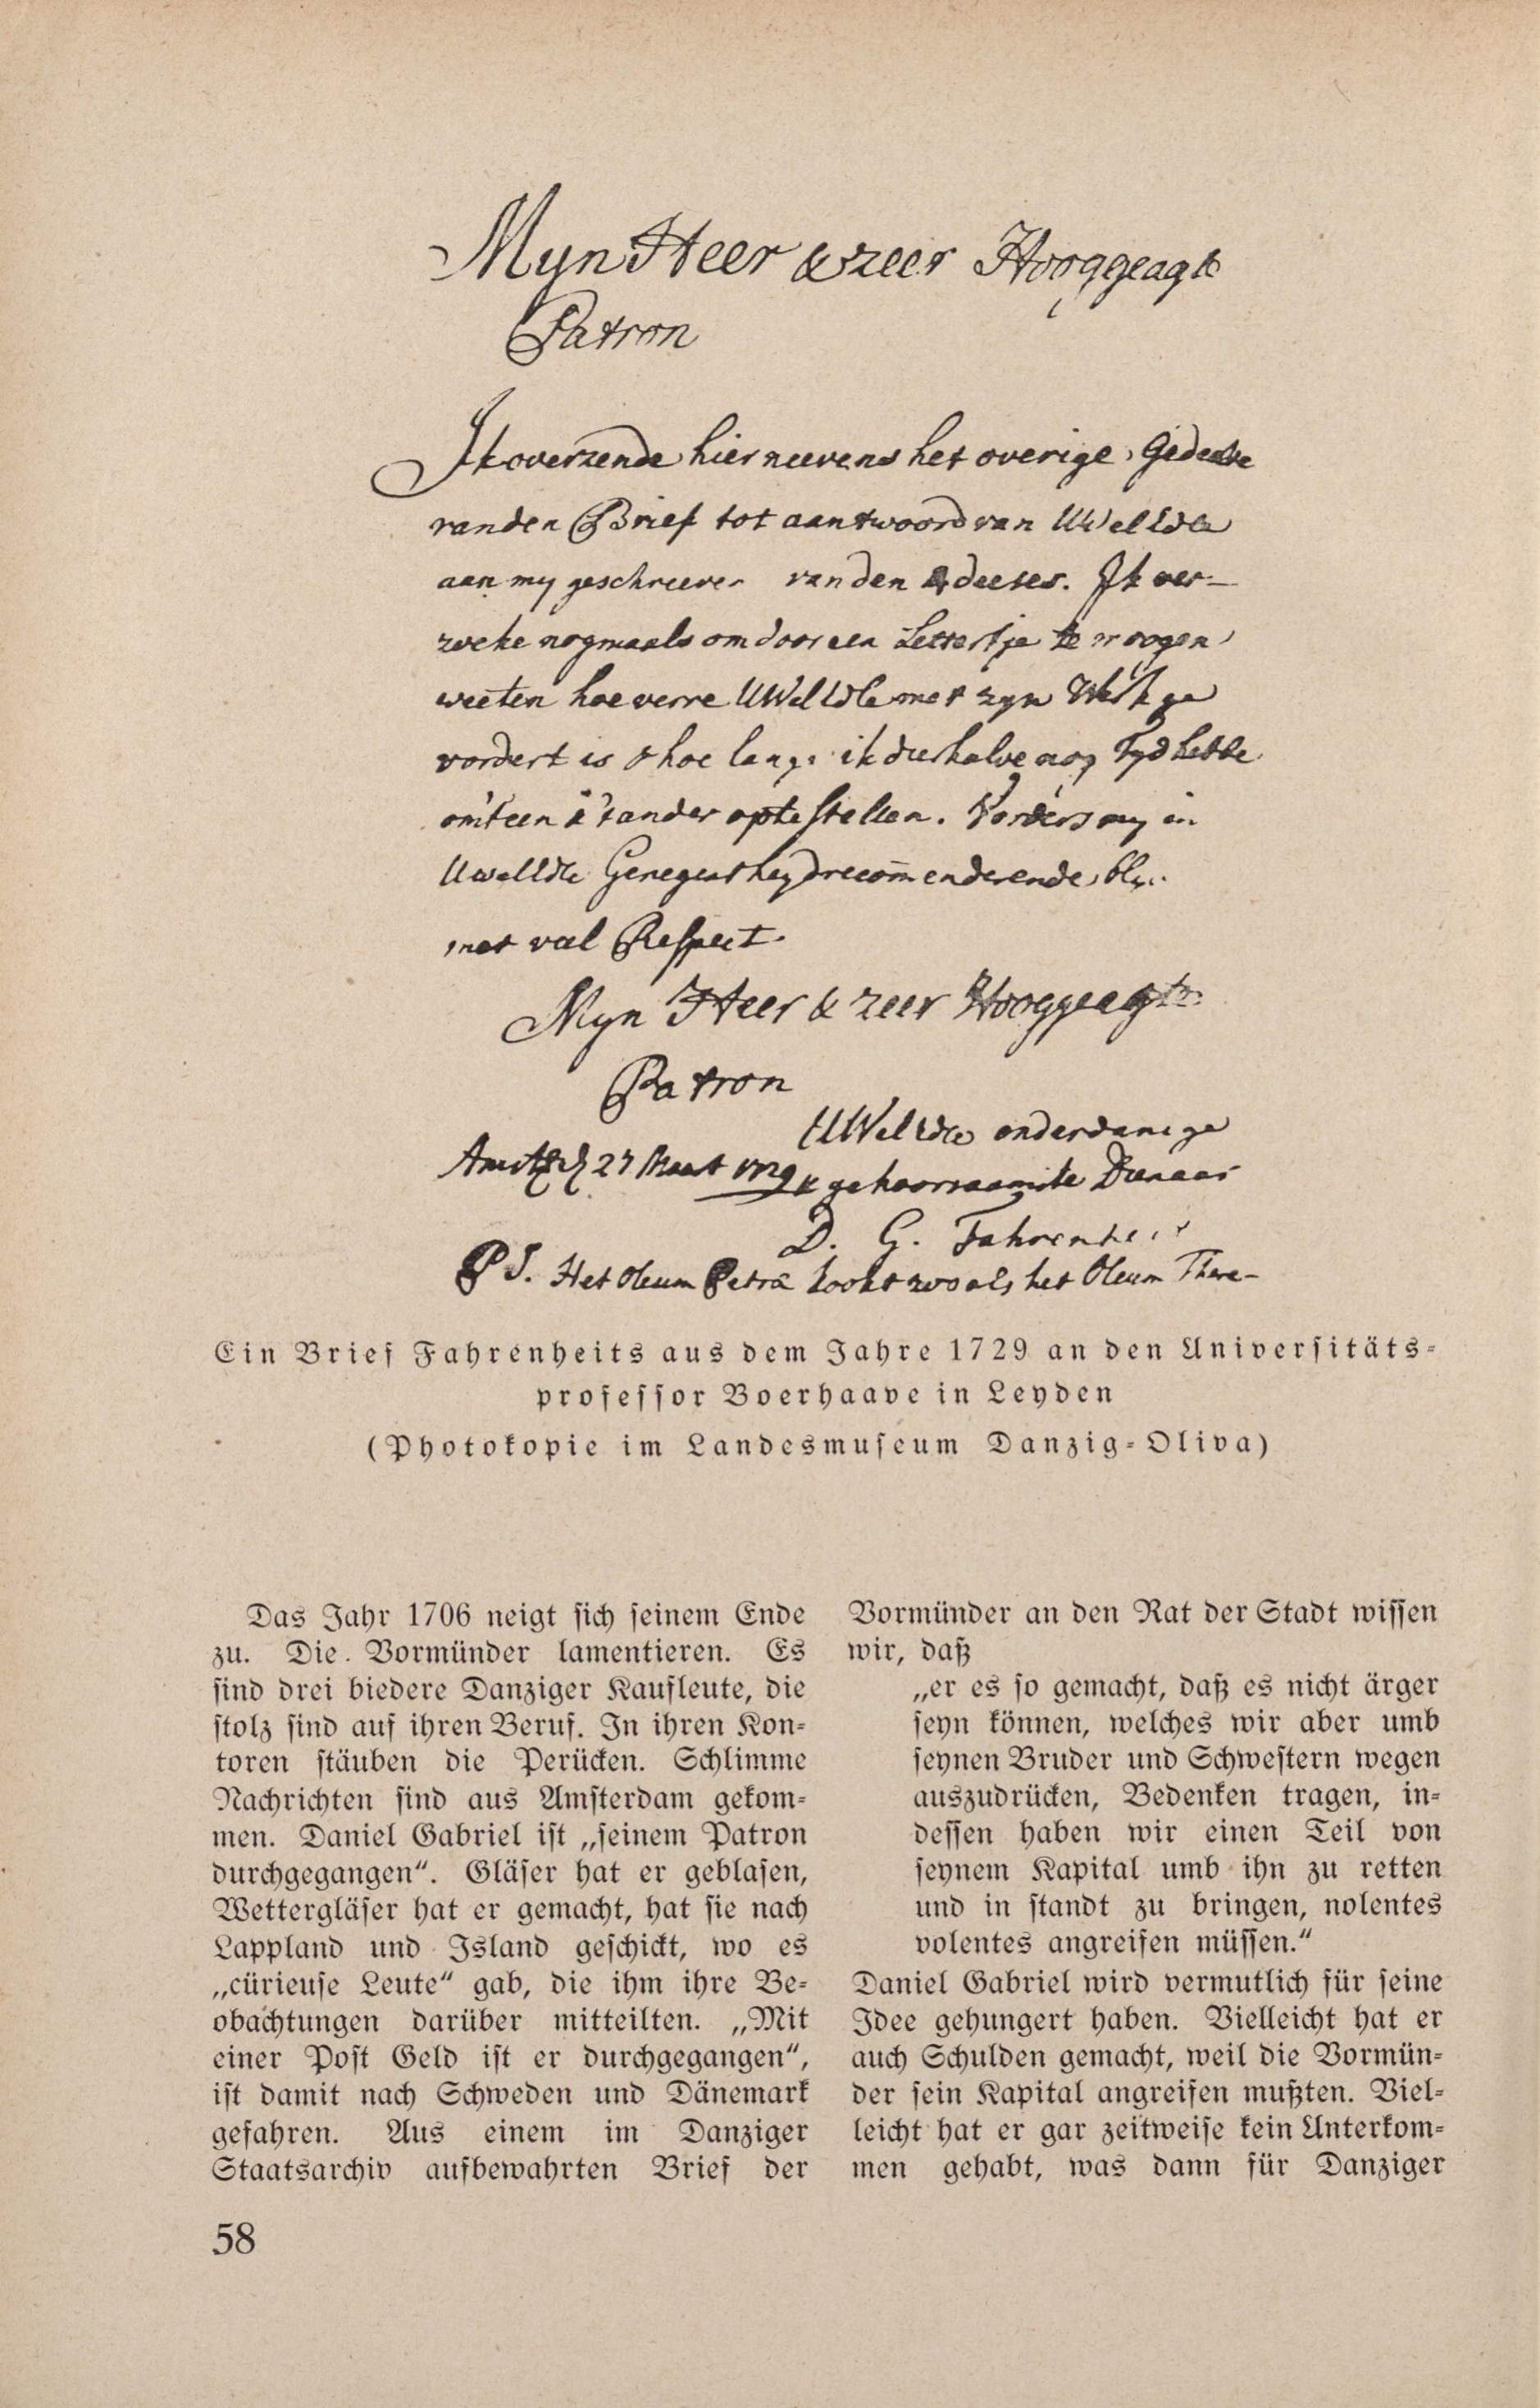 Myn Heer & zeer Hooggeagte
Patron
Ik overzende hier neevens het overige Gedeelte
van den Brief tot aantwoord van UWelEdle
aan my geschreeven van den deeses. Ik ver-
zoeke nogmaals om door een Lettertje te moogen
weeten hoe verre UWelEdle met zyn Werk ge
vordert is & hoe lang ik dieshalve nog Tyd hebbe
om't een & 't ander op te stellen. Vorders my in
UwelEdle Genegentheyd recom̄enderende, bly
met veel Respect.
Myn Heer & zeer Hooggeagte
Patron
UWelEdle onderdanige
Amst 27 Maart 1729 & gehoorsaamste Dienaar
D. G. Fahrenheit
PS. Het Oleum Petræ kookt zoo als het Oleum There-
Ein Brief Fahrenheits aus dem Jahre 1729 an den Universitäts-
professor Boerhaave in Leyden
(Photokopie im Landesmuseum Danzig-Oliva)
Das Jahr 1706 neigt sich seinem Ende
zu. Die Vormünder lamentieren. Es
sind drei biedere Danziger Kaufleute, die
stolz sind auf ihren Beruf. In ihren Kon-
toren stäuben die Perücken. Schlimme
Nachrichten sind aus Amsterdam gekom-
men. Daniel Gabriel ist „seinem Patron
durchgegangen“. Gläser hat er geblasen,
Wettergläser hat er gemacht, hat sie nach
Lappland und Island geschickt, wo es
„cürieuse Leute“ gab, die ihm ihre Be-
obachtungen darüber mitteilten. „Mit
einer Post Geld ist er durchgegangen“,
ist damit nach Schweden und Dänemark
gefahren. Aus einem im Danziger
Staatsarchiv aufbewahrten Brief der
Vormünder an den Rat der Stadt wissen
wir, daß
„er es so gemacht, daß es nicht ärger
seyn können, welches wir aber umb
seynen Bruder und Schwestern wegen
auszudrücken, Bedenken tragen, in-
dessen haben wir einen Teil von
seynem Kapital umb ihn zu retten
und in standt zu bringen, nolentes
volentes angreifen müssen.“
Daniel Gabriel wird vermutlich für seine
Idee gehungert haben. Vielleicht hat er
auch Schulden gemacht, weil die Vormün-
der sein Kapital angreifen mußten. Viel-
leicht hat er gar zeitweise kein Unterkom-
men gehabt, was dann für Danziger
58